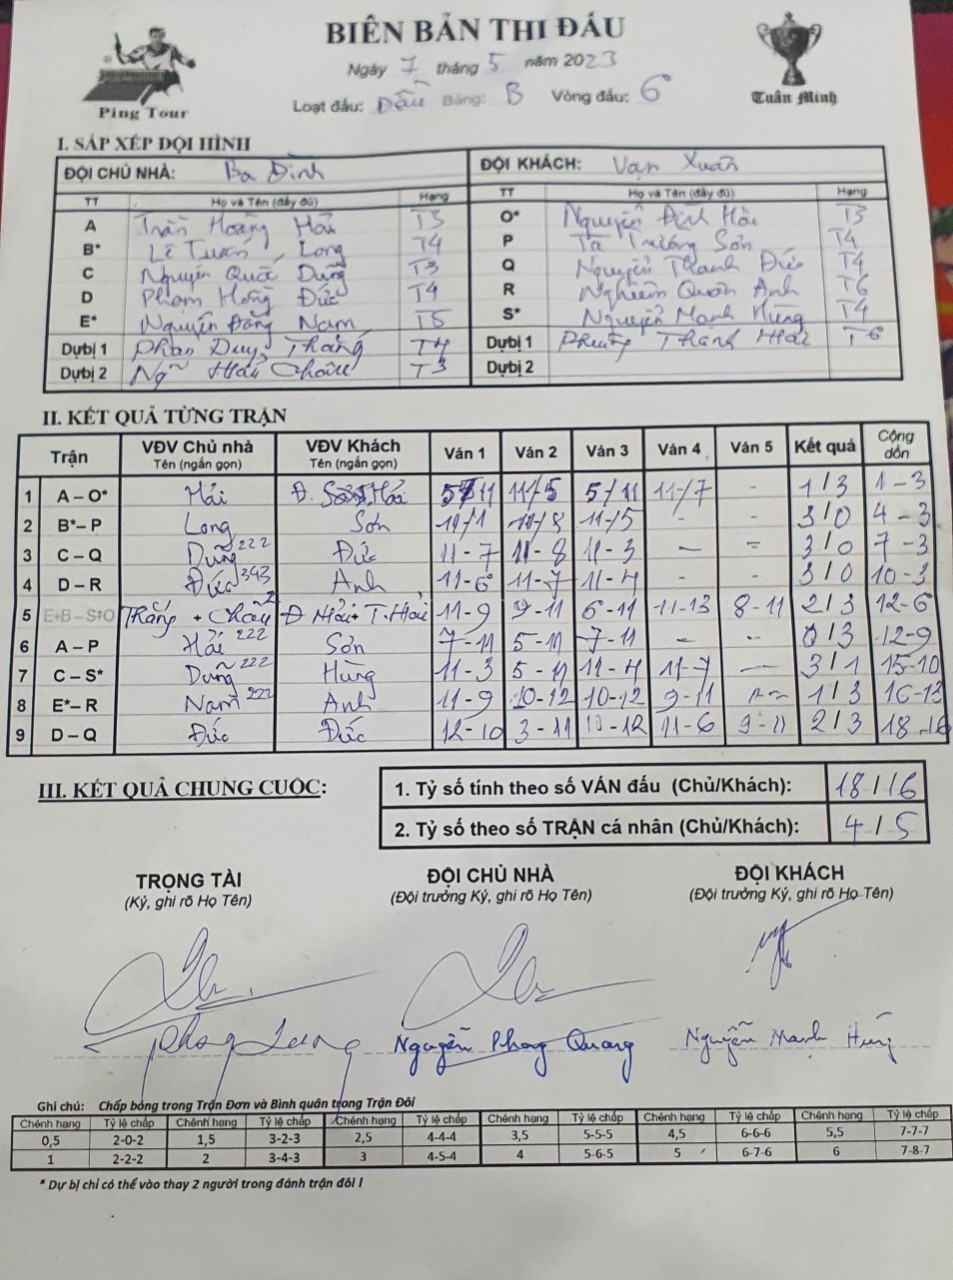 BIÊN BẢN THI ĐẤU
Ping Tour
Tuấn Minh
Ngày 7 tháng 5 năm 2023
Loạt đấu: Đấu Bảng: B Vòng đấu: 6
I. SẮP XẾP ĐỘI HÌNH
ĐỘI CHỦ NHÀ: Ba Đình ĐỘI KHÁCH: Vạn Xuân
TT Họ và Tên (đầy đủ) Hạng TT Họ và Tên (đầy đủ) Hạng
A Trần Hoàng Hải T3 O* Nguyễn Định Hải T3
B* Lê Tuấn Long T4 P Tạ Trường Sơn T4
C Nguyễn Quốc Dũng T3 Q Nguyễn Thanh Đức T4
D Phạm Hồng Đức T4 R Nghiêm Quân Anh T6
E* Nguyễn Đăng Nam T5 S* Nguyễn Mạnh Hùng T4
Dựbị 1 Phan Duy Thắng T4 Dựbị 1 Phung Thanh Hải T6
Dựbị 2 Ng Hải Châu T3 Dựbị 2
II. KẾT QUẢ TỪNG TRẬN
Trận VĐV Chủ nhà Tên (ngắn gọn) VĐV Khách Tên (ngắn gọn) Ván 1 Ván 2 Ván 3 Ván 4 Ván 5 Kết quả Cộng dồn
1 A – O* Hải Đ. Hải 5/11 11/5 5/11 11/7 - 1/3 1-3
2 B*– P Long Sơn 11/8 11/5 - - 3/0 4-3
3 C – Q Dũng 222 Đức 11-7 11-8 11-3 – - 3/0 7-3
4 D – R Đức 343 Anh 11-6 11-7 11-4 - - 3/0 10-3
5 E+B – S+O Thắng + Châu Đ Hải+ T.Hải 11-9 9-11 6-11 11-13 8-11 2/3 12-6
6 A – P Hải 222 Sơn 7-11 5-11 7-11 – - 0/3 12-9
7 C – S* Dũng 222 Hùng 11-3 5-11 11-4 11-7 — 3/1 15-10
8 E*– R Nam 222 Anh 11-9 10-12 10-12 9-11 1/3 16-13
9 D – Q Đức Đức 12-10 3-11 10-12 11-6 9-11 2/3 18-16
III. KẾT QUẢ CHUNG CUỘC:
1. Tỷ số tính theo số VÁN đấu (Chủ/Khách): 18/16
2. Tỷ số theo số TRẬN cá nhân (Chủ/Khách): 4/5
TRỌNG TÀI ĐỘI CHỦ NHÀ ĐỘI KHÁCH
(Ký, ghi rõ Họ Tên) (Đội trưởng Ký, ghi rõ Họ Tên) (Đội trưởng Ký, ghi rõ Họ Tên)
Nguyễn Phong Quang Nguyễn Mạnh Hùng
Ghi chú: Chấp bóng trong Trận Đơn và Bình quân trong Trận Đôi
Chênh hạng Tỷ lệ chấp Chênh hạng Tỷ lệ chấp Chênh hạng Tỷ lệ chấp Chênh hạng Tỷ lệ chấp Chênh hạng Tỷ lệ chấp Chênh hạng Tỷ lệ chấp
0,5 2-0-2 1,5 3-2-3 2,5 4-4-4 3,5 5-5-5 4,5 6-6-6 5,5 7-7-7
1 2-2-2 2 3-4-3 3 4-5-4 4 5-6-5 5 6-7-6 6 7-8-7
* Dự bị chỉ có thể vào thay 2 người trong đánh trận đôi !